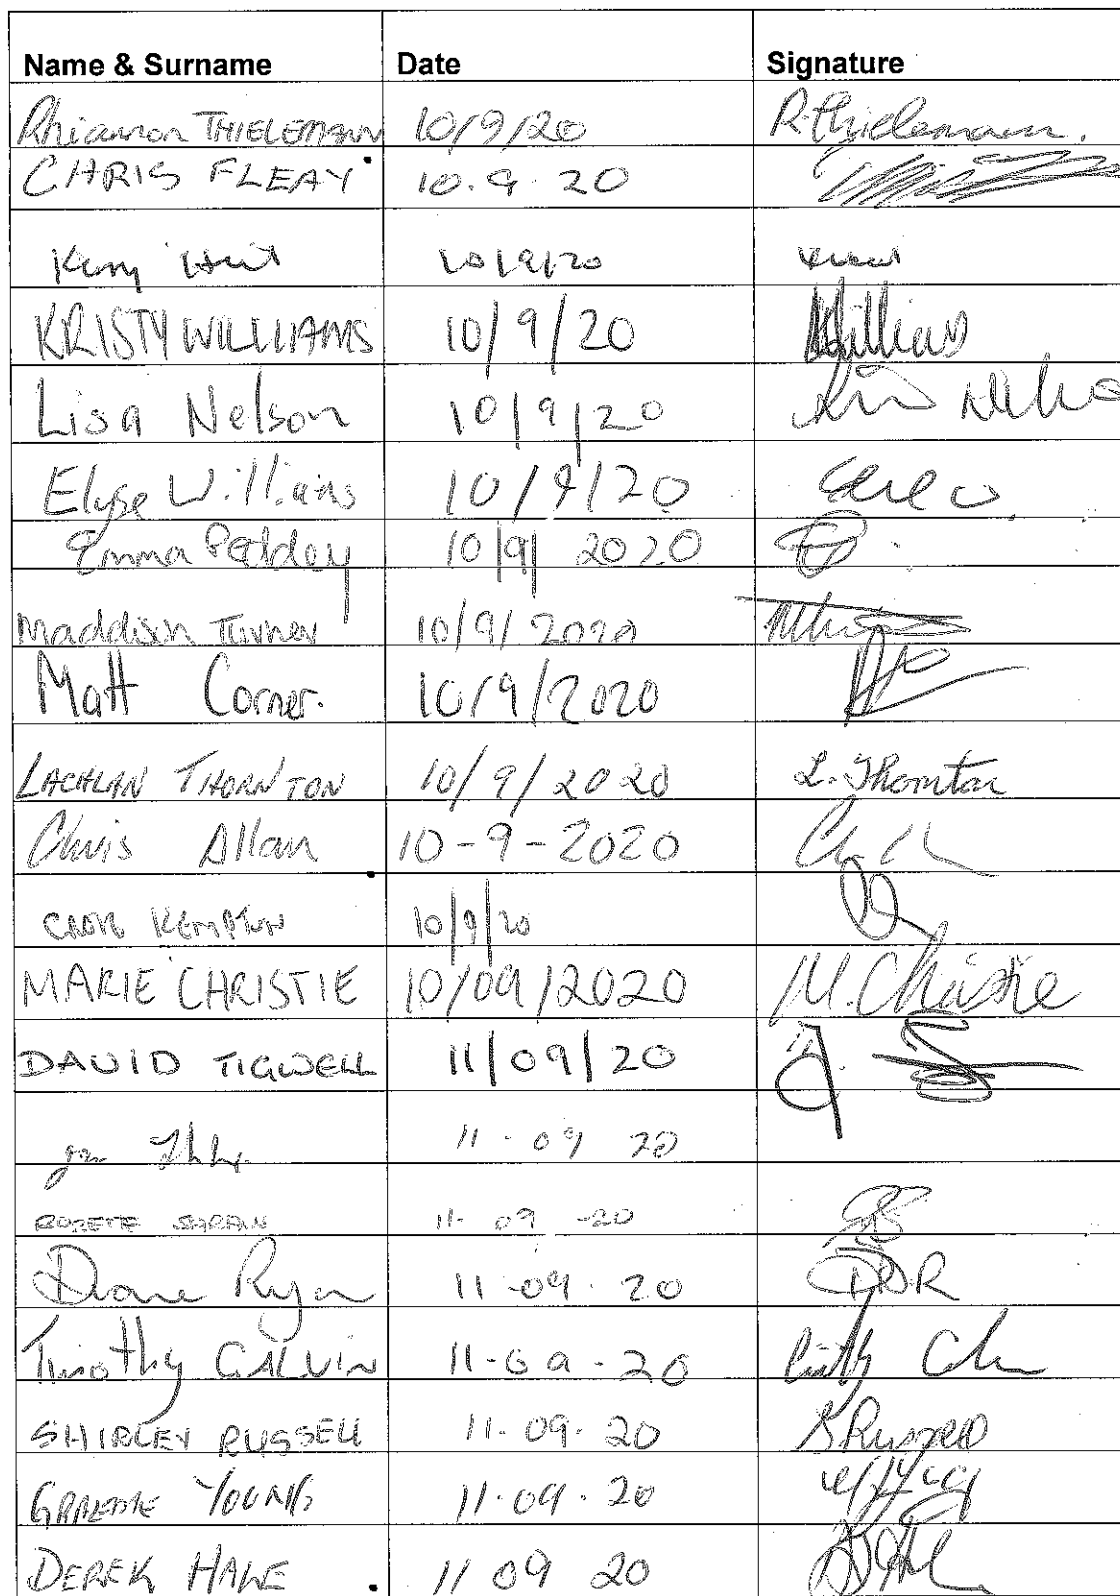 Name & Surname Date Signature
Rhiannon THIELEMANN 10/9/20 R.Thielemann.
CHRIS FLEAY 10.9.20
Kerry 10/9/20
KRISTY WILLIAMS 10/9/20 KWilliams
Lisa Nelson 10/9/20
Elyse Williams 10/9/20
Emma 10/9/2020
Maddison Turner 10/9/2020
Matt Corner. 10/9/2020
LACHLAN THORNTON 10/9/2020 L. Thornton
Chris Allan 10-9-2020
KEMPTON 10/9/20
MARIE CHRISTIE 10/09/2020 M.Christie
DAVID TIGWELL 11/09/20
11-09 20
11-09-20
Diane Ryan 11-09.20 DR
Timothy GALVIN 11-09-20
SHIRLEY RUSSELL 11-09.20 SRussell
GRAEME YOUNG 11.09.20
DEREK 11 09 20